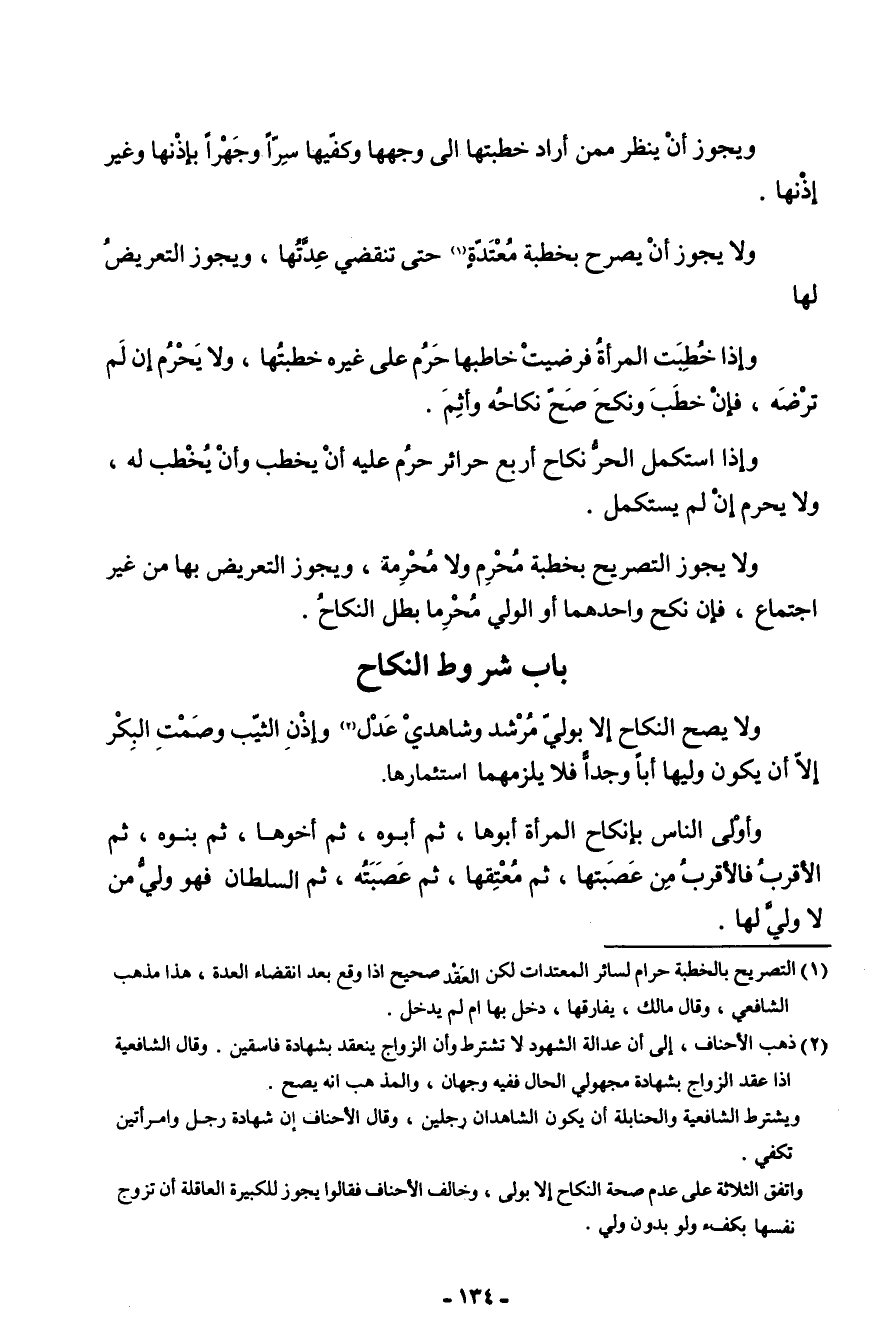 ويجوز أنْ ينظر ممن أراد خطبتها الى وجهها وكفّيها سِرّاً وجَهْراً بإذْنها وغير
إذْنها .
ولا يجوز أنْ يصرح بخطبة مُعْتَدّةٍ(١) حتى تنقضي عِدَّتُها ، ويجوز التعريضُ
لها
وإذا خُطِبَت المرأةُ فرضيتْ خاطبها حَرُم على غيره خطبتُها ، ولا يَحْرُم إن لَم
ترْضَه ، فإنْ خطَبَ ونكحَ صَحّ نكاحُه وأثِمَ .
وإذا استكمل الحرُّ نكاح أربع حرائر حرُم عليه أنْ يخطب وأنْ يُخْطب له ،
ولا يحرم إنْ لم يستكمل .
ولا يجوز التصريح بخطبة مُحْرِم ولا مُحْرِمة ، ويجوز التعريض بها من غير
اجتماع ، فإن نكح واحدهما أو الولي مُحْرِما بطل النكاحُ .
باب شروط النكاح
ولا يصح النكاح إلا بوليّ مُرْشد وشاهديْ عَدْل(٢) وإذْنِ الثيّب وصَمْتِ البِكْر
إلاّ أن يكون وليها أباً وجداً فلا يلزمهما استئمارها.
وأوْلى الناس بإنكاح المرأة أبوها ، ثم أبـوه ، ثم أخوهـا ، ثم بنـوه ، ثم
الأقربُ فالأقربُ مِن عَصَبتها ، ثم مُعْتِقها ، ثم عَصَبَتُه ، ثم السلطان فهو وليُّ من
لا وليَّ لها .
(١) التصريح بالخطبة حرام لسائر المعتدات لكن العَقْد صحيح اذا وقع بعد انقضاء العدة ، هذا مذهب
الشافعي ، وقال مالك ، يفارقها ، دخل بها ام لم يدخل .
(٢) ذهب الأحناف ، إلى أن عدالة الشهود لا تشترط وأن الزواج ينعقد بشهادة فاسقين . وقال الشافعية
اذا عقد الزواج بشهادة مجهولي الحال ففيه وجهان ، والمذ هب انه يصح .
ويشترط الشافعية والحنابلة أن يكون الشاهدان رجلين ، وقال الأحناف إن شهادة رجـل وامـرأتين
تكفي .
واتفق الثلاثة على عدم صحة النكاح إلا بولى ، وخالف الأحناف فقالوا يجوز للكبيرة العاقلة أن تزوج
نفسها بكفء ولو بدون ولي .
- ١٣٤ -